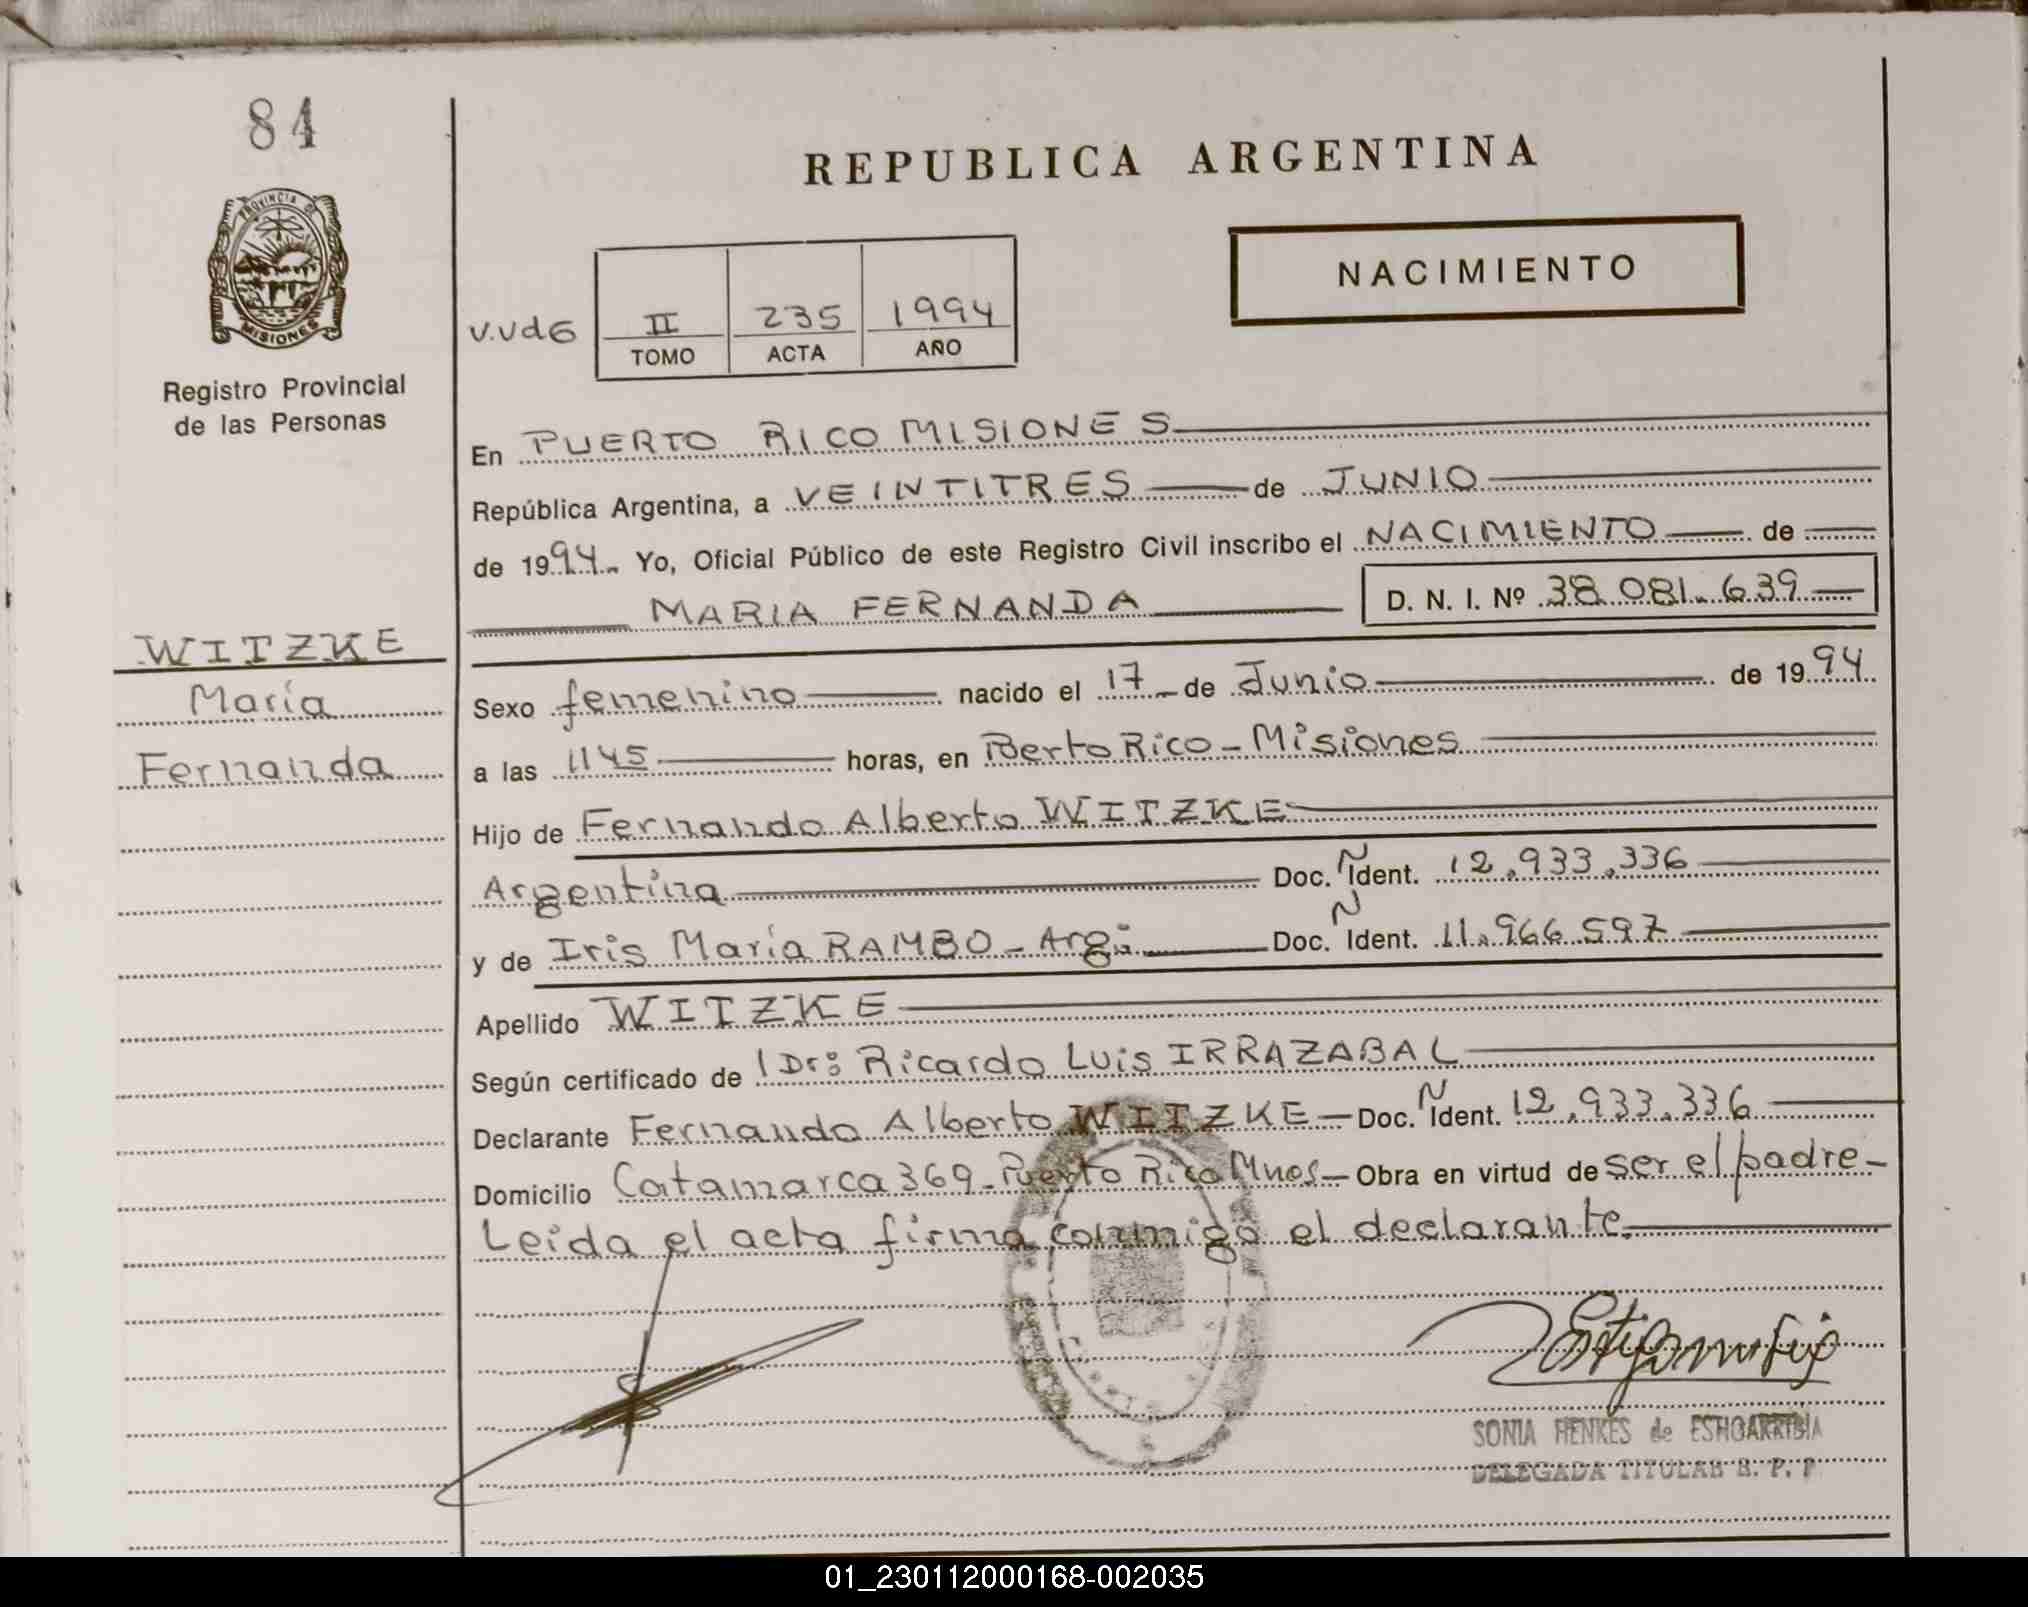 84
PROVINCIA DE
MISIONES
Registro Provincial
de las Personas
REPUBLICA ARGENTINA
NACIMIENTO
V.Vd6
II 235 1994
TOMO ACTA AÑO
En PUERTO RICO MISIONES
República Argentina, a VEINTITRES de JUNIO
de 1994. Yo, Oficial Público de este Registro Civil inscribo el NACIMIENTO de
MARIA FERNANDA D. N. I. Nº 38.081.639
WITZKE
María
Fernanda
Sexo femenino nacido el 17 de Junio de 1994
a las 1145 horas, en Poerto Rico - Misiones
Hijo de Fernando Alberto WITZKE
Argentina Doc. Ñ Ident. 12.933.336
y de Iris María RAMBO - Arg: Doc. Ñ Ident. 11.966.597
Apellido WITZKE
Según certificado de Dr: Ricardo Luis IRRAZABAL
Declarante Fernando Alberto WITZKE - Doc. Ñ Ident. 12.933.336
Domicilio Catamarca 369 - Puerto Rico Mnes - Obra en virtud de ser el padre -
Leida el acta firma conmigo el declarante.
SONIA HENKES de ESTIGARRIBIA
DELEGADA TITULAR R. P. P
01_230112000168-002035